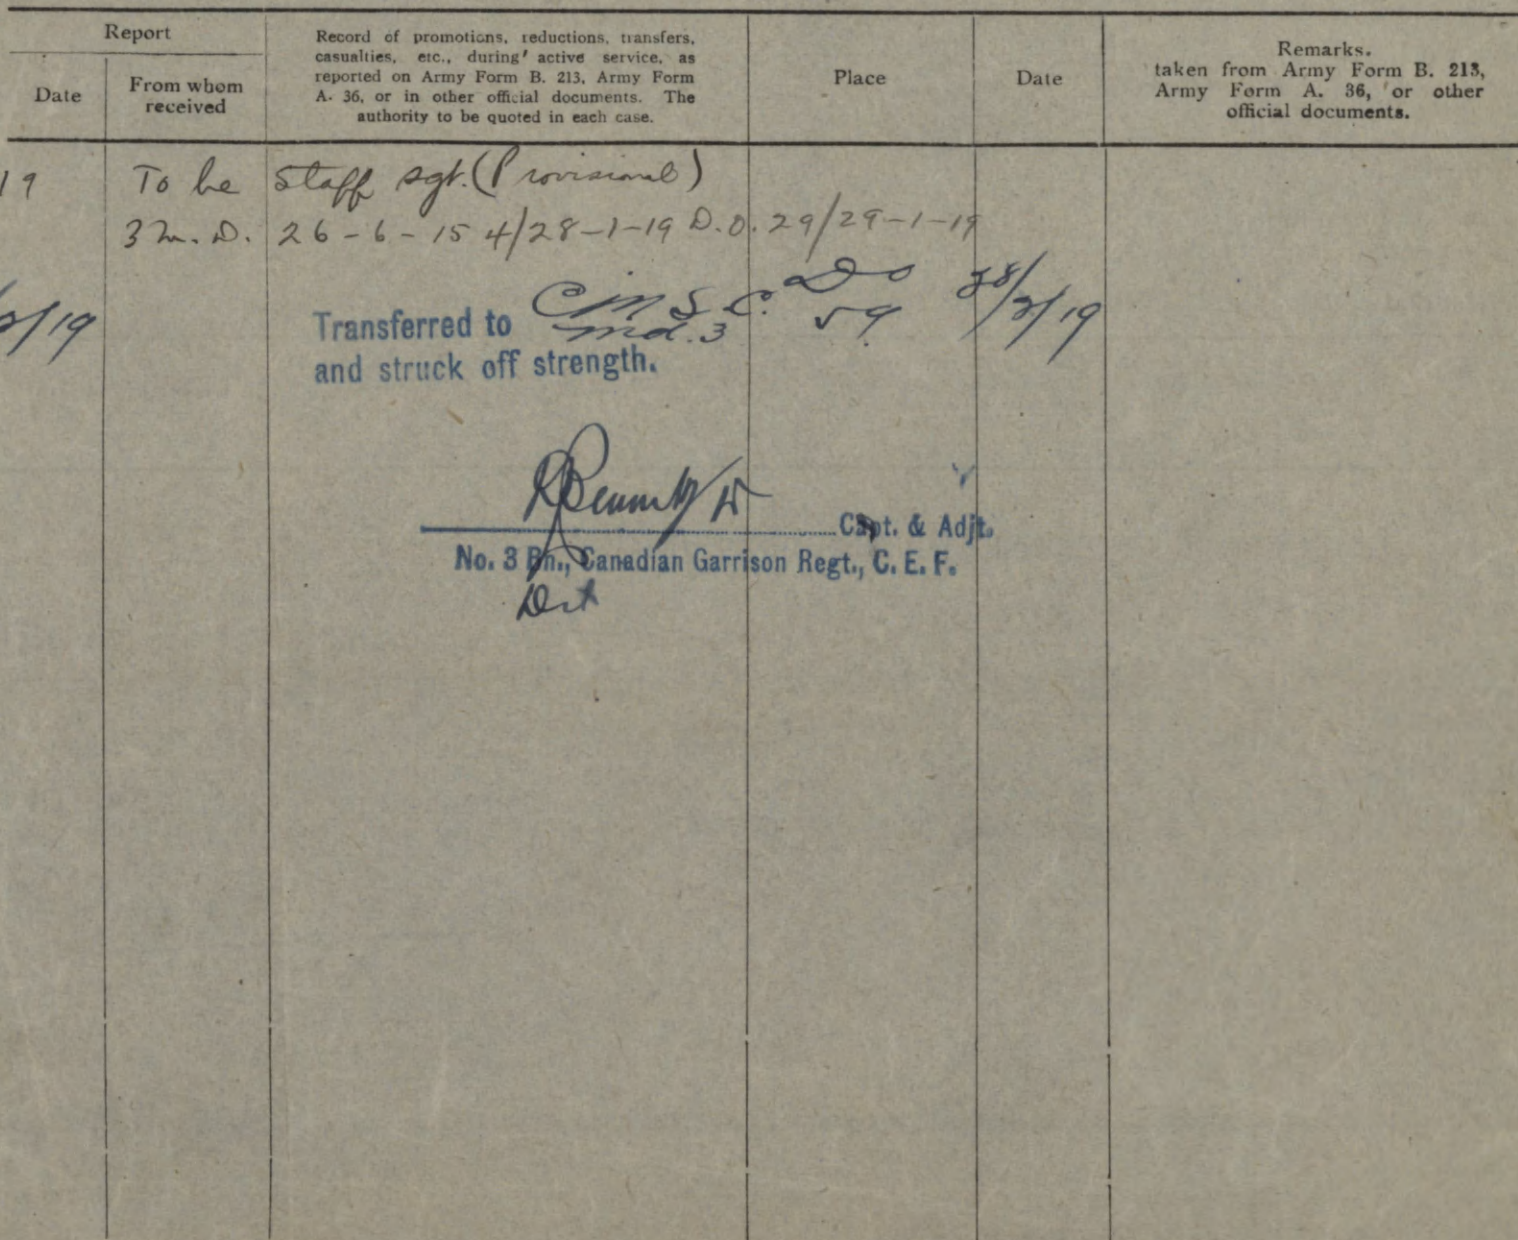 Report
Date
From whom
received
Record of promotions, reductions, transfers,
casualties, etc., during active service, as
reported on Army Form B. 213, Army Form
A. 36, or in other official documents. The
authority to be quoted in each case.
Place
Date
Remarks.
taken from Army Form B. 213,
Army Form A. 36, or other
official documents.
19 To be Staff sgt. (Provisional)
3 M. D. 26-6-15 4/28-1-19 D.O. 29/29-1-19
2/19
Transferred to C M S C. Do 28/2/19
md. 3 59
and struck off strength.
Capt. & Adjt.
No. 3 Bn., Canadian Garrison Regt., C. E. F.